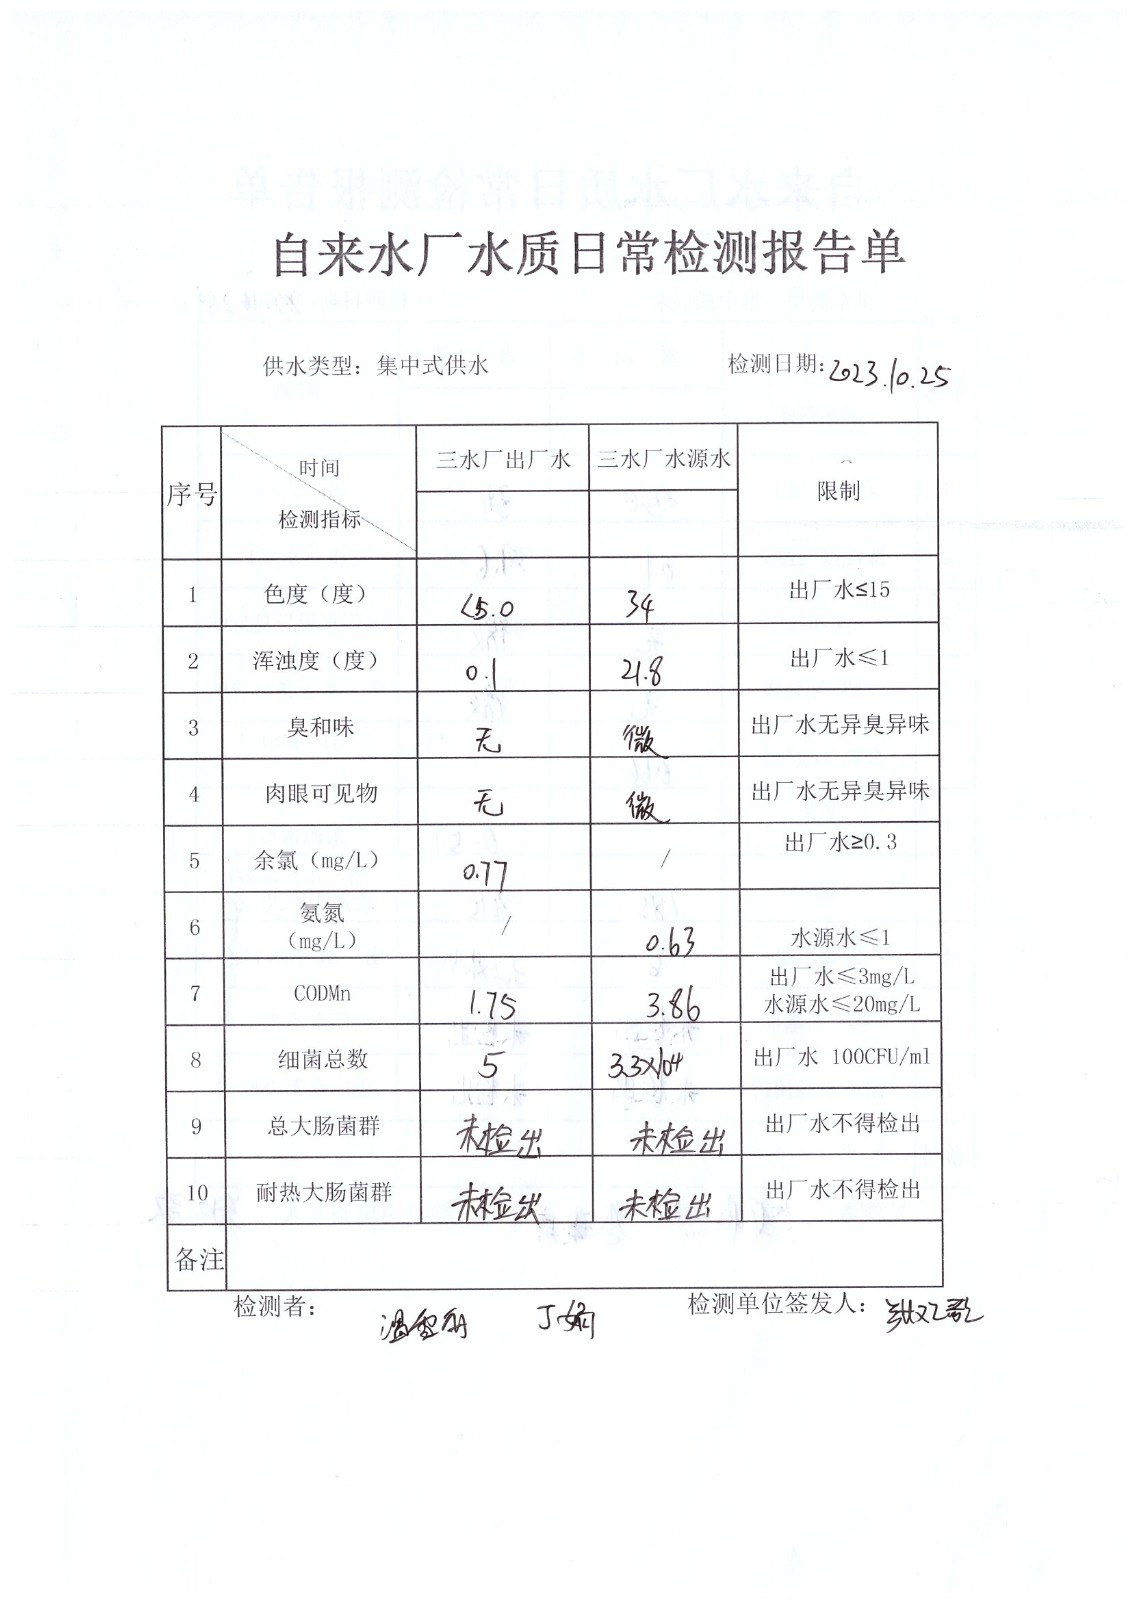 自来水厂水质日常检测报告单
供水类型：集中式供水 检测日期：2023.10.25
序号 时间 检测指标 三水厂出厂水 三水厂水源水 限制
1 色度（度） <5.0 34 出厂水≤15
2 浑浊度（度） 0.1 21.8 出厂水≤1
3 臭和味 无 微 出厂水无异臭异味
4 肉眼可见物 无 微 出厂水无异臭异味
5 余氯（mg/L） 0.77 / 出厂水≥0.3
6 氨氮 （mg/L） / 0.63 水源水≤1
7 CODMn 1.75 3.86 出厂水≤3mg/L 水源水≤20mg/L
8 细菌总数 5 3.3×104 出厂水 100CFU/ml
9 总大肠菌群 未检出 未检出 出厂水不得检出
10 耐热大肠菌群 未检出 未检出 出厂水不得检出
备注
检测者： 检测单位签发人：